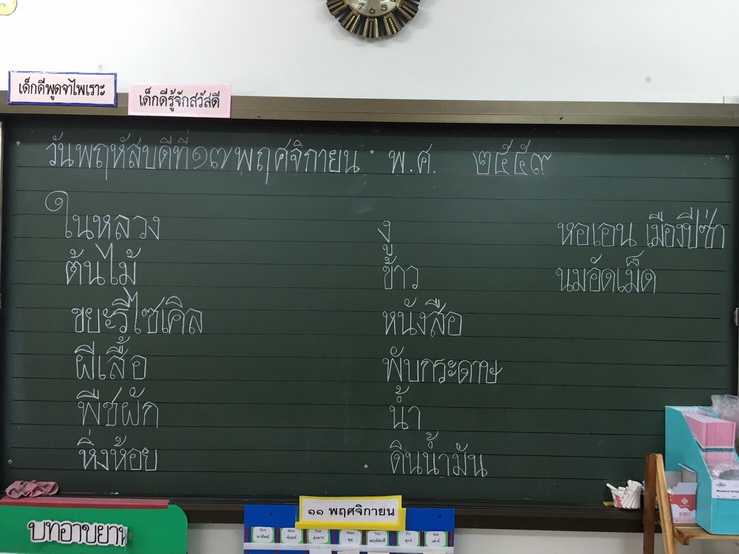 เด็กดีพูดจาไพเราะ
เด็กดีรู้จักสวัสดี
วันพฤหัสบดีที่๑๗ พฤศจิกายน พ.ศ. ๒๕๕๙
ในหลวง งู หอเอน เมืองปีซ่า
ต้นไม้ ข้าว นมอัดเม็ด
ขยะรีไซเคิล หนังสือ
ผีเสื้อ พับกระดาษ
พืชผัก น้ำ
หิ่งห้อย ดินน้ำมัน
๑๑ พฤศจิกายน
บทอาขยาน